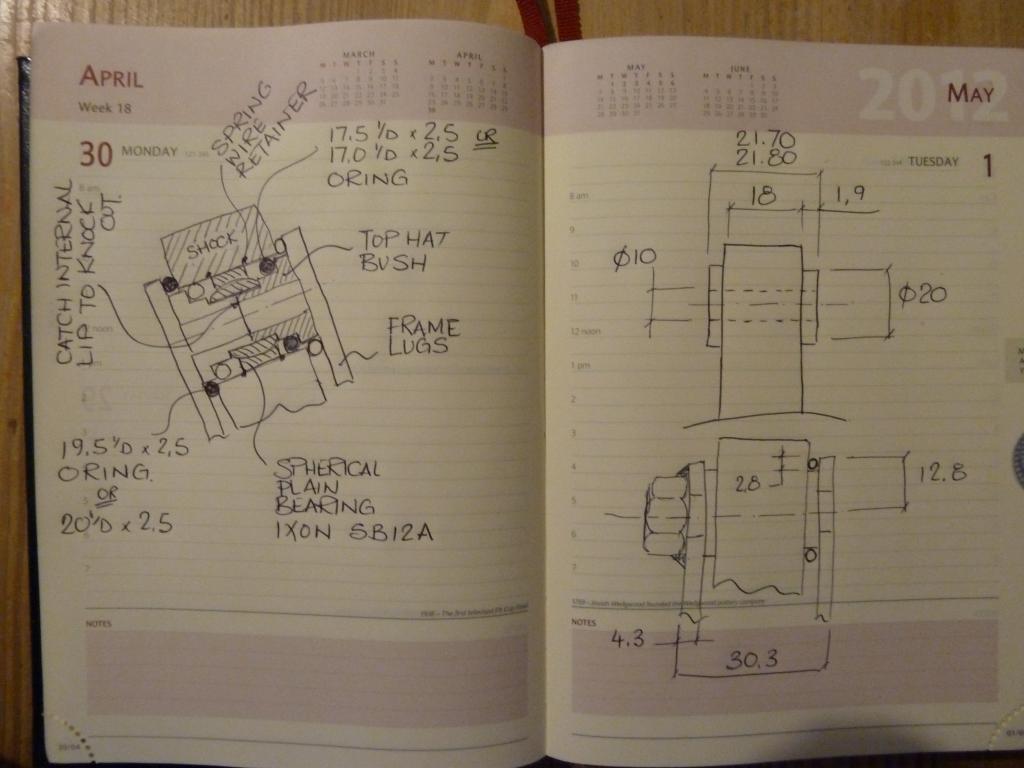 APRIL
Week 18
MARCH
APRIL
30 MONDAY
SPRING
WIRE
RETAINER
17.5 I/D x 2,5 OR
17.0 I/D x 2,5
ORING
CATCH INTERNAL
LIP TO KNOCK
OUT.
SHOCK
TOP HAT
BUSH
FRAME
LUGS
19,5 I/D x 2,5
ORING.
OR
20 I/D x 2.5
SPHERICAL
PLAIN
BEARING
1XON SB12A
NOTES
MAY
JUNE
2012
MAY
TUESDAY 1
21.70
21.80
18
1,9
8 am
9
10
11
12 noon
1 pm
2
3
4
5
6
7
Ø10
Ø20
2,8
12.8
NOTES
4.3
30.3